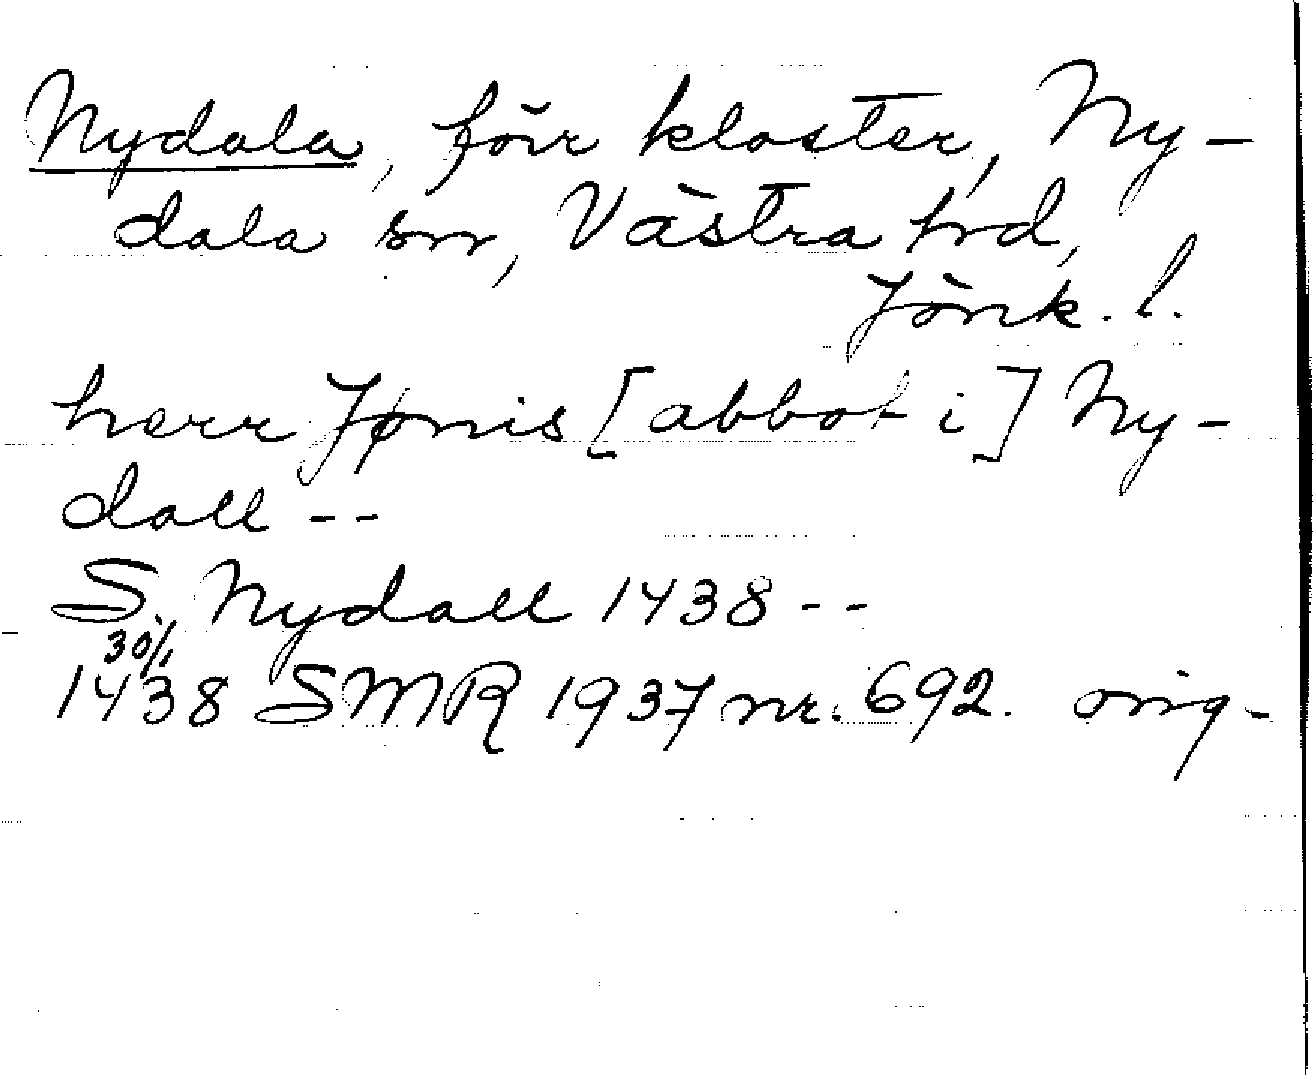 Nydala, förr kloster, Ny-
dala sn, Västra hd,
Jönk. l.
herr Jønis [abbot i] Ny-
dall --
S. Nydall 1438 --
30/1
1438 SMR 1937 nr. 692. orig.